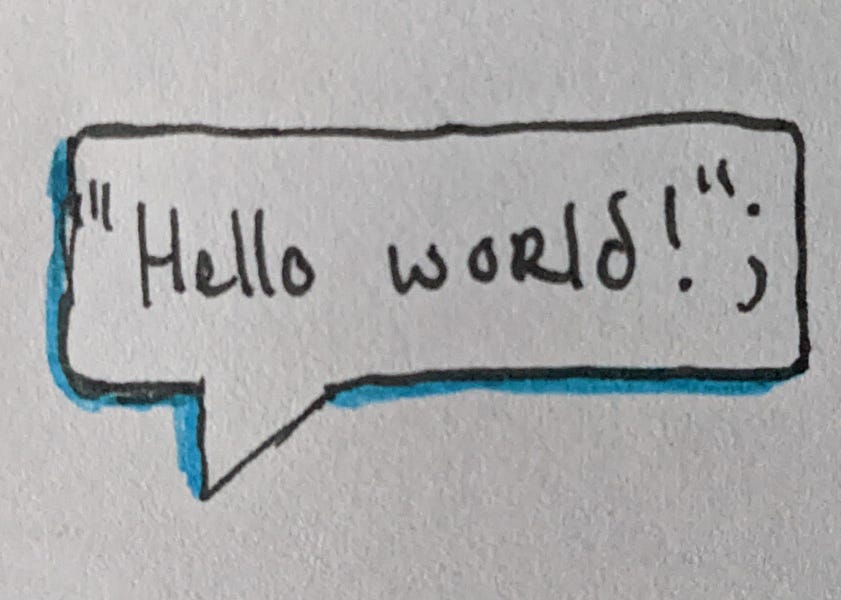 "Hello world!";